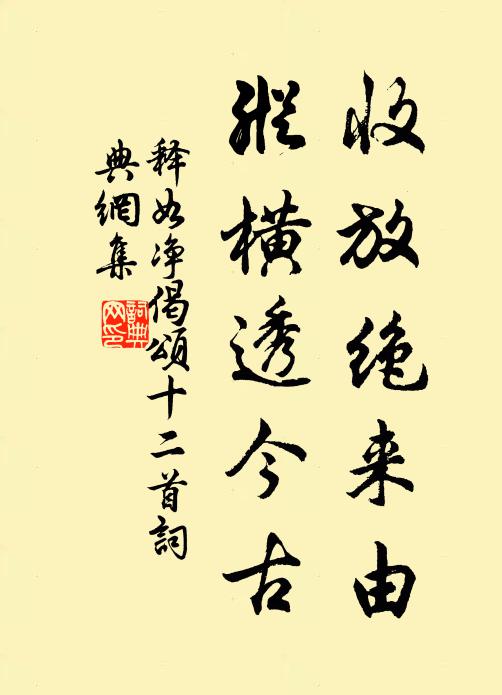 收放绝来由
纵横透今古
释如净偈頌十二首詞
典網集
詞典網印